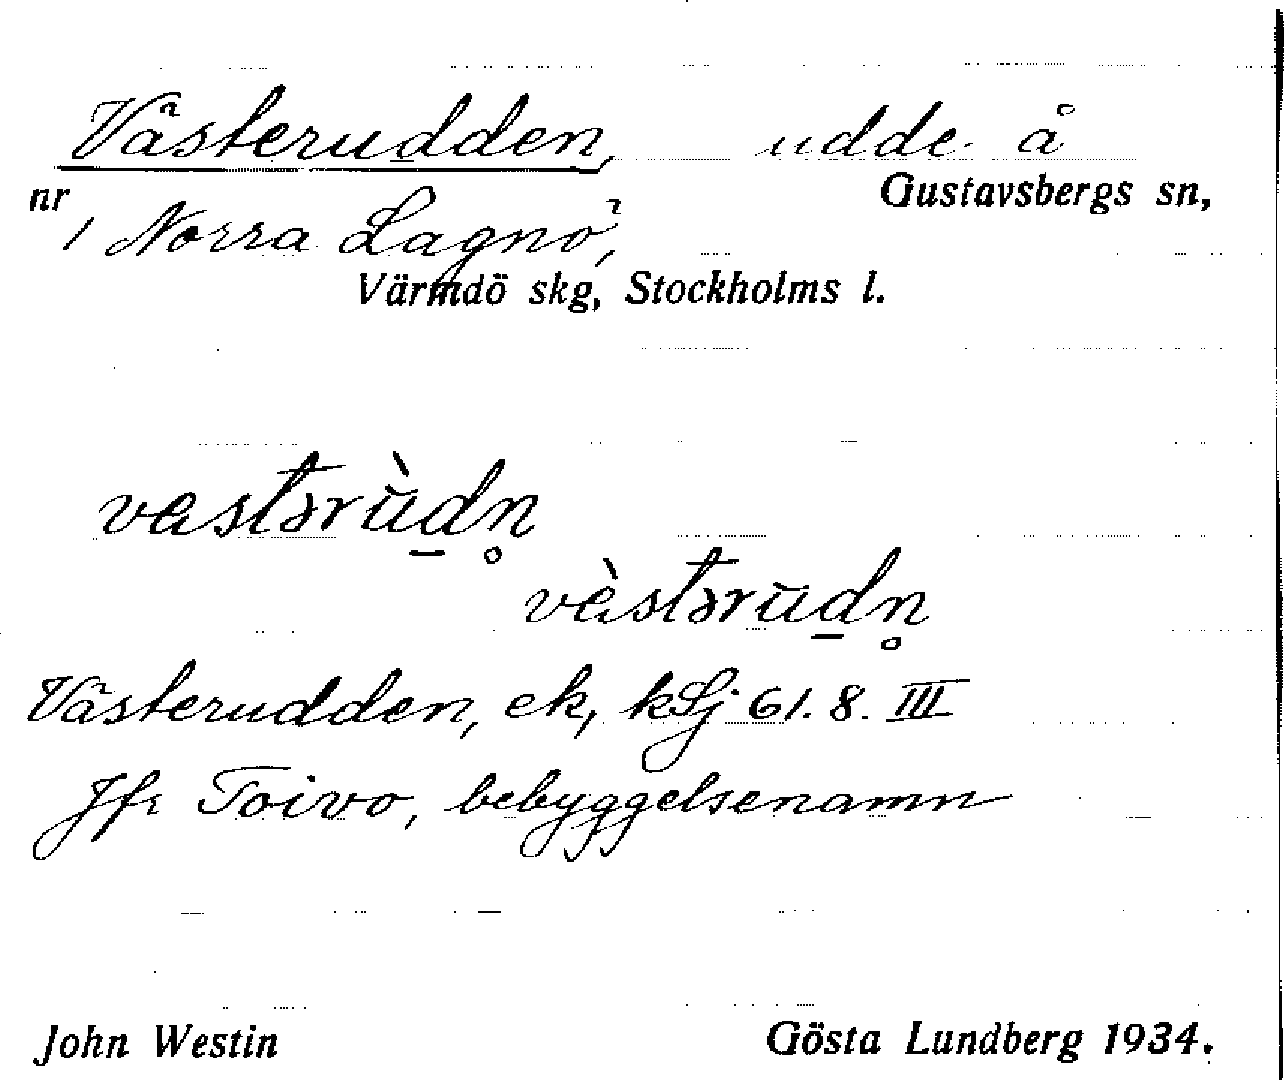 Västerudden, udde å
nr Gustavsbergs sn,
1 Norra Lagnö,
Värmdö skg, Stockholms l.
vastərùdn̥
vàstərudn̥
Västerudden, ek, kSj 61.8. III
Jfr Toivo, bebyggelsenamn
John Westin Gösta Lundberg 1934.